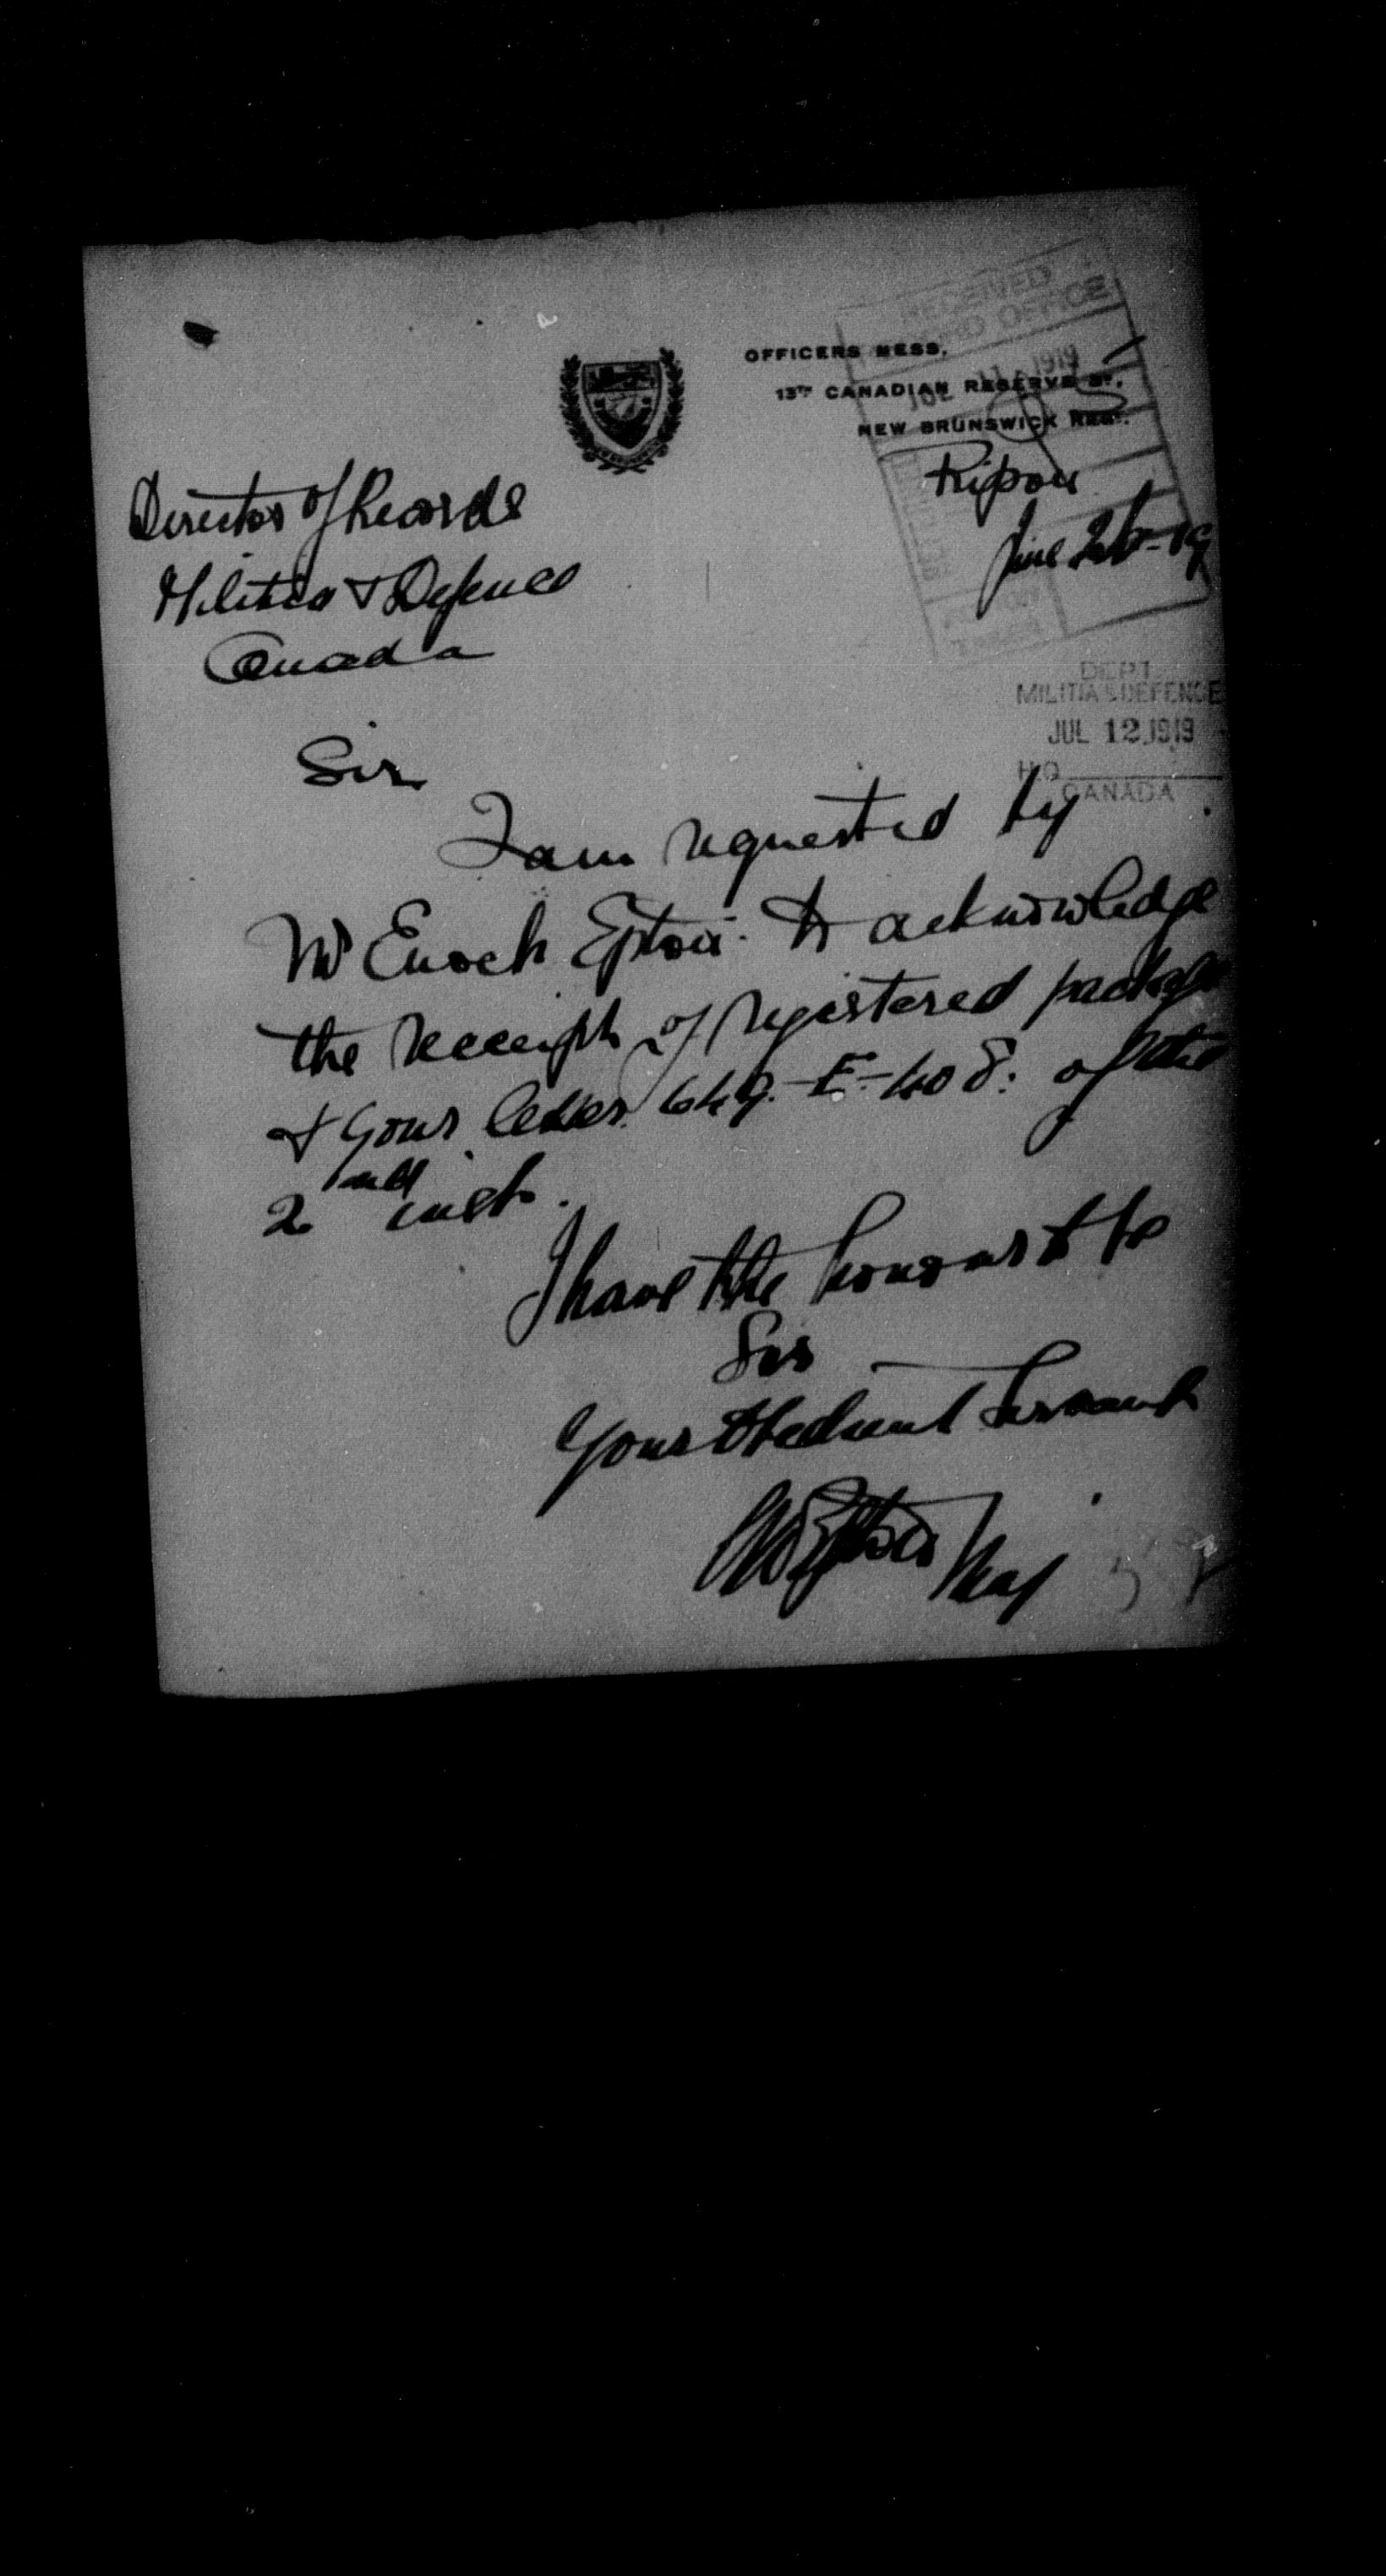 OFFICERS MESS,
13TH CANADIAN RESERVE BN,
NEW BRUNSWICK REGT.
RECEIVED
OFFICE
JUL 11 1919
Ripon
June 19
Director of Records
Militia & Defence
Canada
DEPT.
MILITIA & DEFENCE
JUL 12 1919
H.Q.
CANADA
Sir
I am requested by
Mr Enoch Epton to acknowledge
the receipt of registered package
& your letter 649-E-408: of the
2nd inst.
I have the honour to be
Sir
Your Obedient Servant
Epton Maj